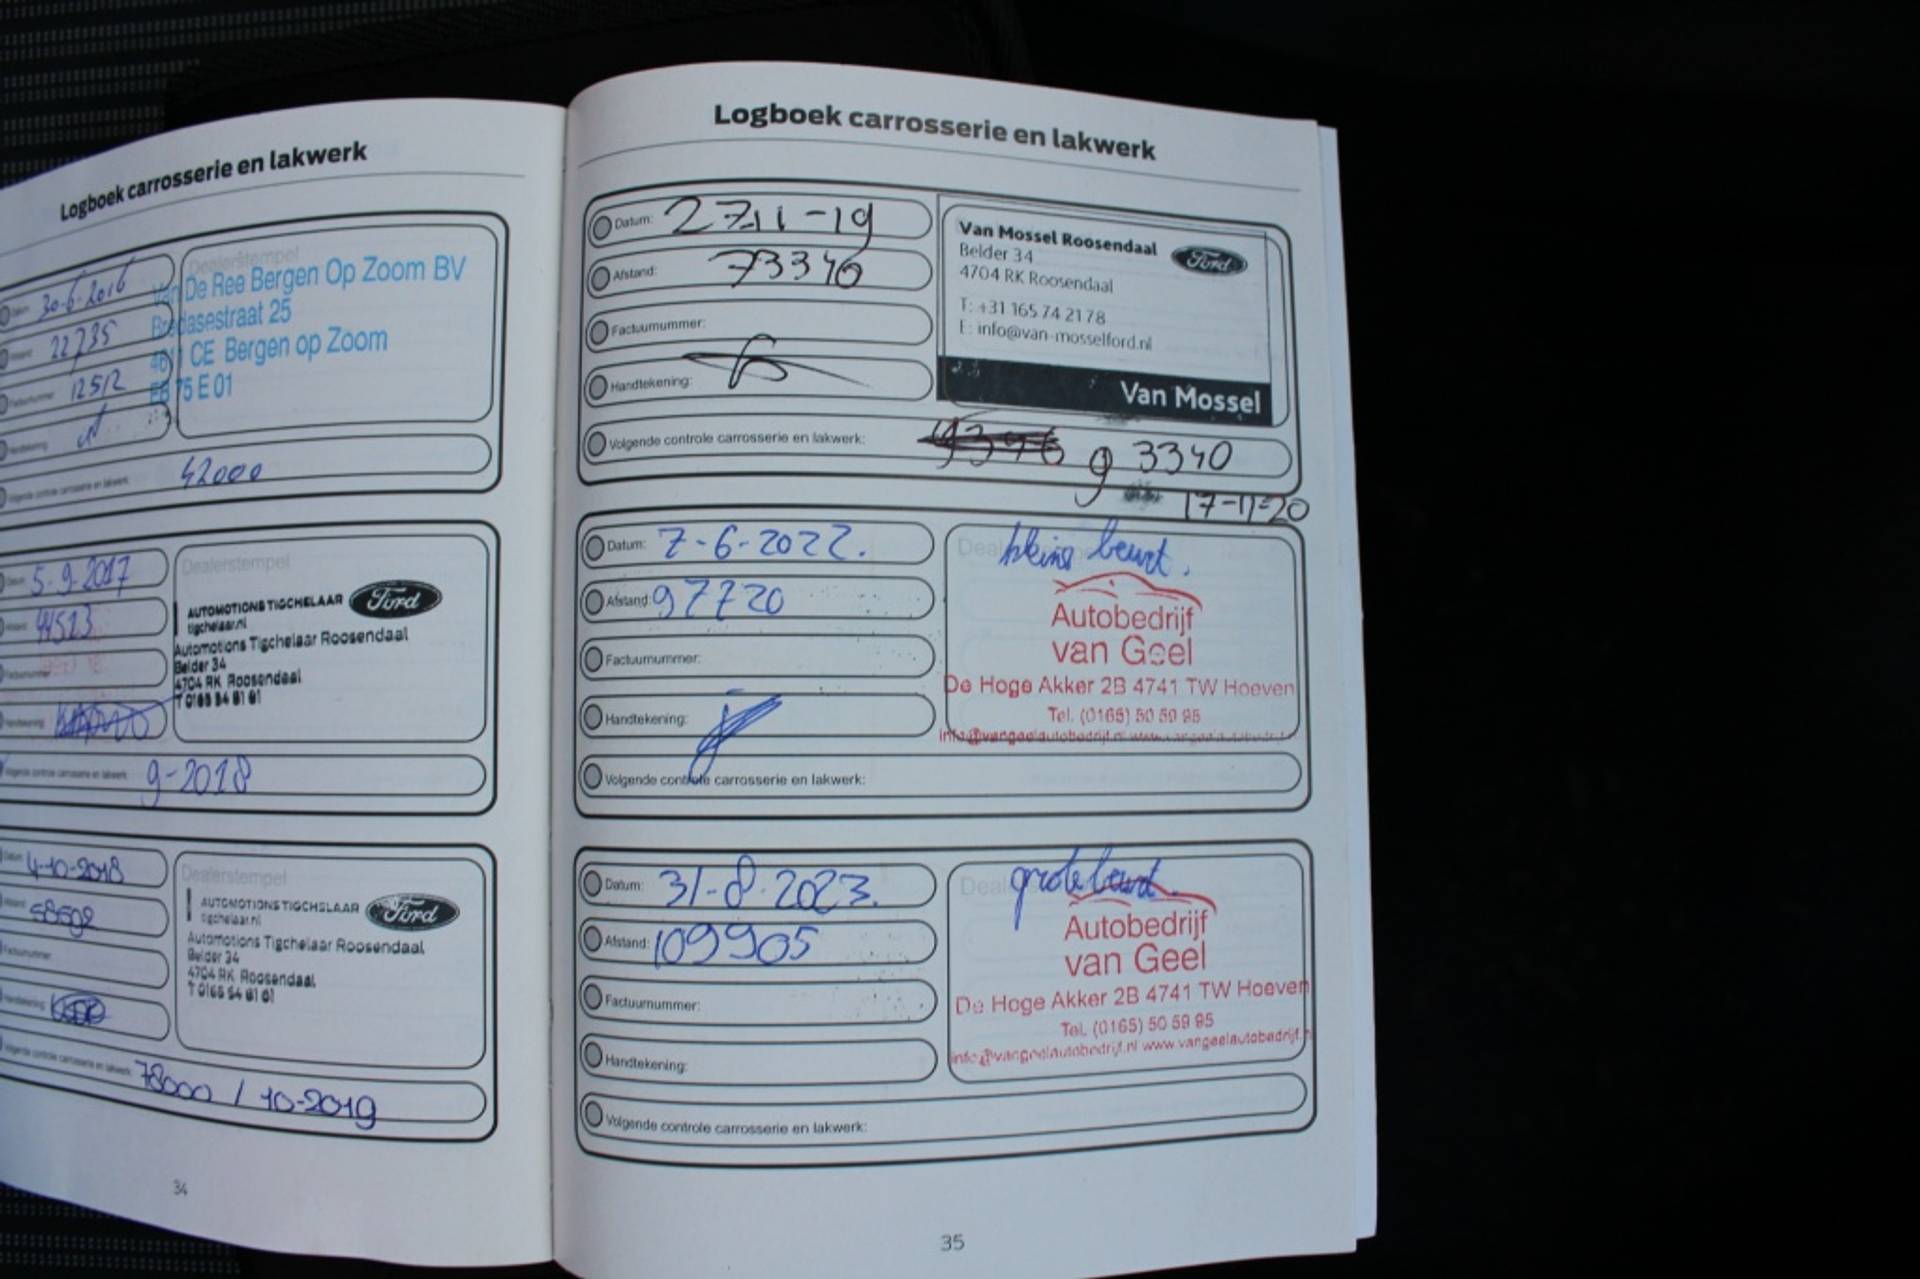 Logboek carrosserie en lakwerk
Dealerstempel
30-6-2016
Van De Ree Bergen Op Zoom BV
Bredasestraat 25
4611 CE Bergen op Zoom
75 E 01
22735
Factuurnummer: 12512
Handtekening:
Volgende controle carrosserie en lakwerk: 42000
Datum: 5-9-2017
Dealerstempel
AUTOMOTIONS TIGCHELAAR Ford
tigchelaar.nl
Automotions Tigchelaar Roosendaal
Belder 34
4704 RK Roosendaal
T 0165 54 81 81
44523
Factuurnummer:
Handtekening:
Volgende controle carrosserie en lakwerk: 9-2018
Datum: 4-10-2018
Dealerstempel
AUTOMOTIONS TIGCHELAAR Ford
tigchelaar.nl
Automotions Tigchelaar Roosendaal
Belder 34
4704 RK Roosendaal
T 0165 54 81 81
Afstand: 58592
Factuurnummer:
Handtekening:
Volgende controle carrosserie en lakwerk: 78000 / 10-2019
34
Logboek carrosserie en lakwerk
Datum: 27-11-19
Afstand: 73340
Factuurnummer:
Handtekening:
Van Mossel Roosendaal Ford
Belder 34
4704 RK Roosendaal
T: +31 165 74 21 78
E: info@van-mosselford.nl
Van Mossel
Volgende controle carrosserie en lakwerk: 93340
17-11-20
Datum: 7-6-2022.
Afstand: 97720
Factuurnummer:
Handtekening:
kleine beurt.
Autobedrijf
van Geel
De Hoge Akker 2B 4741 TW Hoeven
Tel. (0165) 50 59 95
info@vangeelautobedrijf.nl www.vangeelautobedrijf.nl
Volgende controle carrosserie en lakwerk:
Datum: 31-8-2023.
Afstand: 109905
Factuurnummer:
Handtekening:
grote beurt.
Autobedrijf
van Geel
De Hoge Akker 2B 4741 TW Hoeven
Tel. (0165) 50 59 95
info@vangeelautobedrijf.nl www.vangeelautobedrijf.n
Volgende controle carrosserie en lakwerk:
35